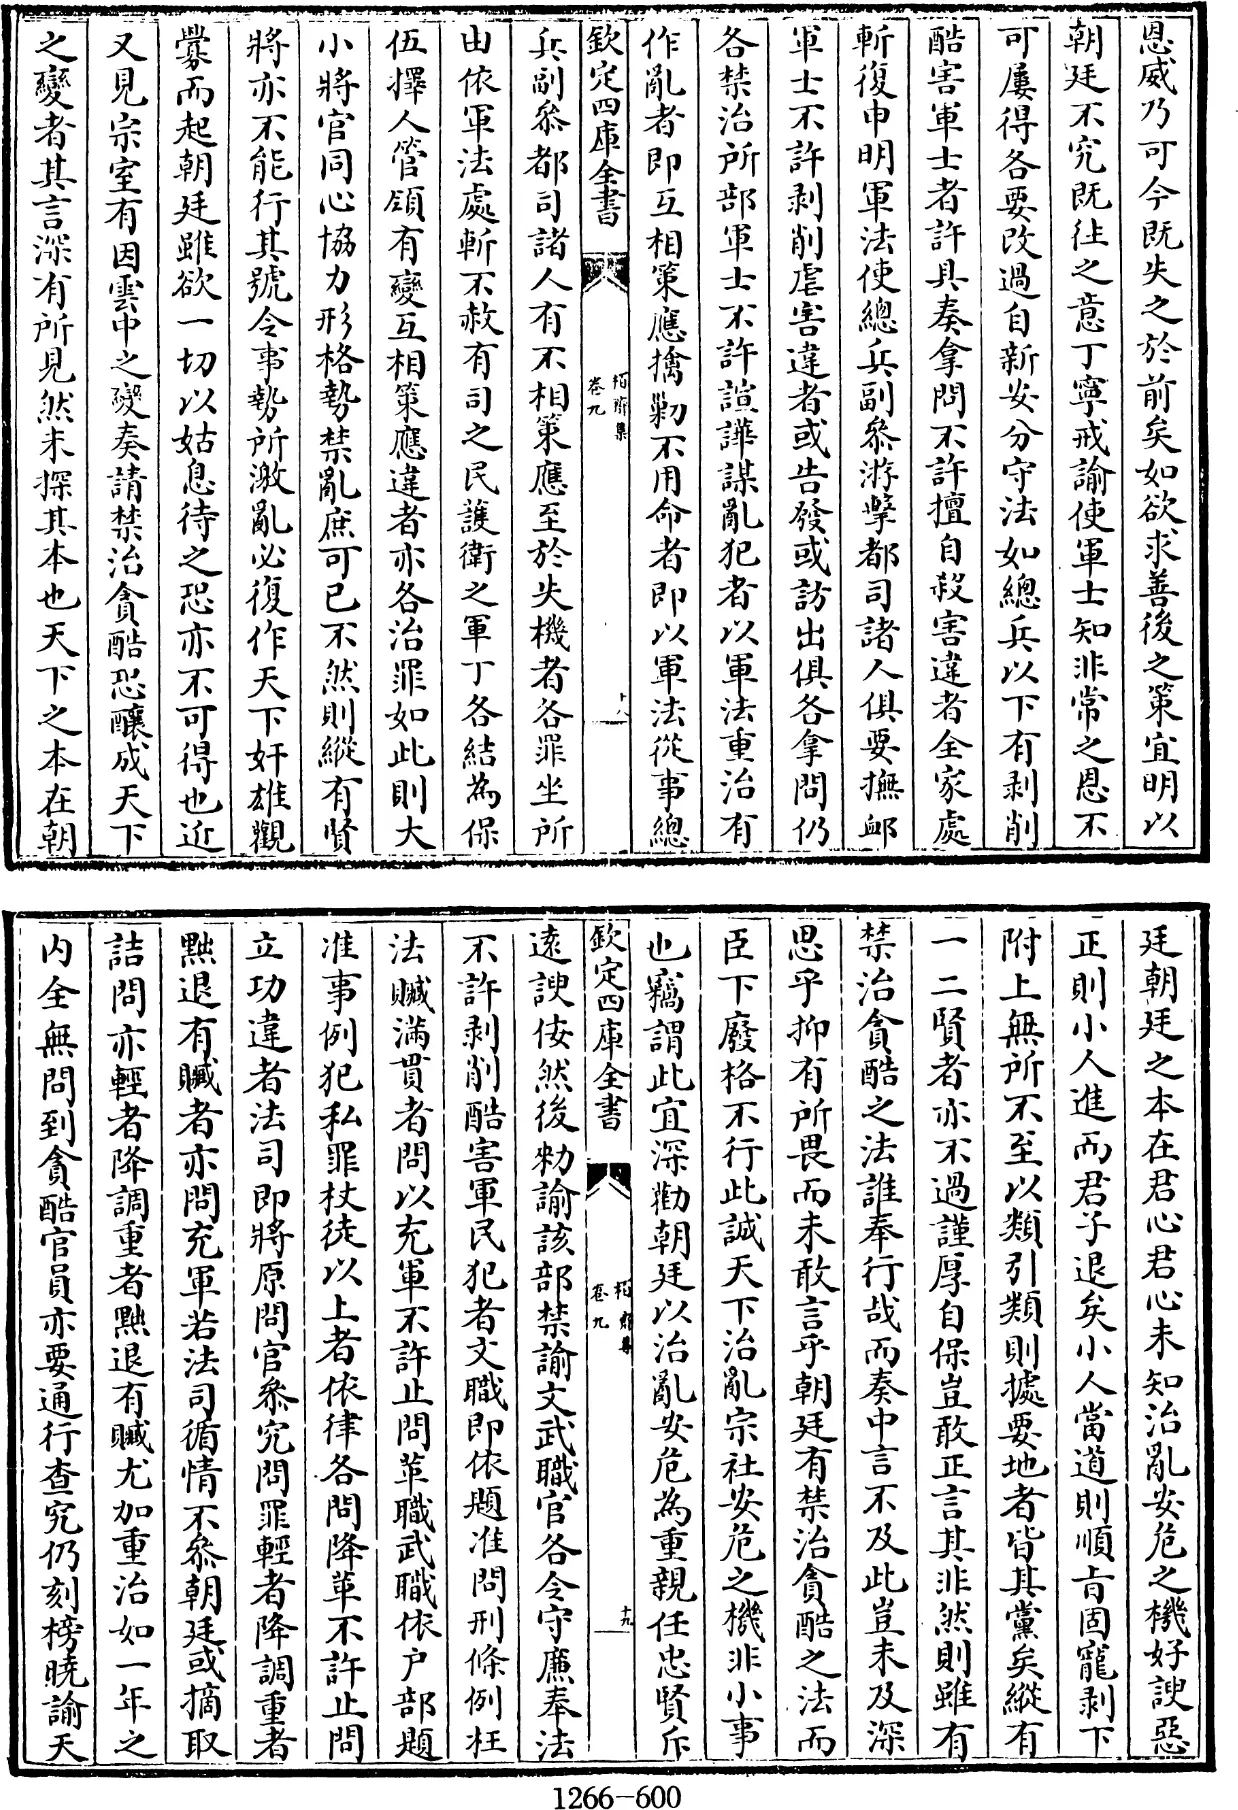 恩威乃可今既失之於前矣如欲求善後之策宜明以
朝廷不究既徃之意丁寧戒諭使軍士知非常之恩不
可屢得各要改過自新安分守法如總兵以下有剥削
酷害軍士者許具奏拿問不許擅自殺害違者全家處
斬復申明軍法使總兵副叅游擊都司諸人俱要撫䘏
軍士不許剥削虐害違者或告發或訪出俱各拿問仍
各禁治所部軍士不許諠譁謀亂犯者以軍法重治有
作亂者即互相策應擒勦不用命者即以軍法從事總
欽定四庫全書
柏齋集
卷九
十八
兵副叅都司諸人有不相策應至於失機者各罪坐所
由依軍法處斬不赦有司之民護衛之軍丁各結為保
伍擇人管領有變互相策應違者亦各治罪如此則大
小將官同心協力形格勢禁亂庶可已不然則縱有賢
將亦不能行其號令事勢所激亂必復作天下奸雄觀
釁而起朝廷雖欲一切以姑息待之恐亦不可得也近
又見宗室有因雲中之變奏請禁治貪酷恐釀成天下
之變者其言深有所見然未探其本也天下之本在朝
廷朝廷之本在君心君心未知治亂安危之機好諛惡
正則小人進而君子退矣小人當道則順㫖固寵剥下
附上無所不至以類引類則據要地者皆其黨矣縱有
一二賢者亦不過謹厚自保豈敢正言其非然則雖有
禁治貪酷之法誰奉行哉而奏中言不及此豈未及深
思乎抑有所畏而未敢言乎朝廷有禁治貪酷之法而
臣下廢格不行此誠天下治亂宗社安危之機非小事
也竊謂此宜深勸朝廷以治亂安危為重親任忠賢斥
欽定四庫全書
柏齋集
卷九
十九
遠諛佞然後勑諭該部禁諭文武職官各令守廉奉法
不許剥削酷害軍民犯者文職即依題准問刑條例枉
法贓滿貫者問以充軍不許止問革職武職依户部題
准事例犯私罪杖徒以上者依律各問降革不許止問
立功違者法司即將原問官叅究問罪輕者降調重者
黜退有贓者亦問充軍若法司循情不叅朝廷或摘取
詰問亦輕者降調重者黜退有贓尤加重治如一年之
内全無問到貪酷官員亦要通行查究仍刻榜曉諭天
1266-600